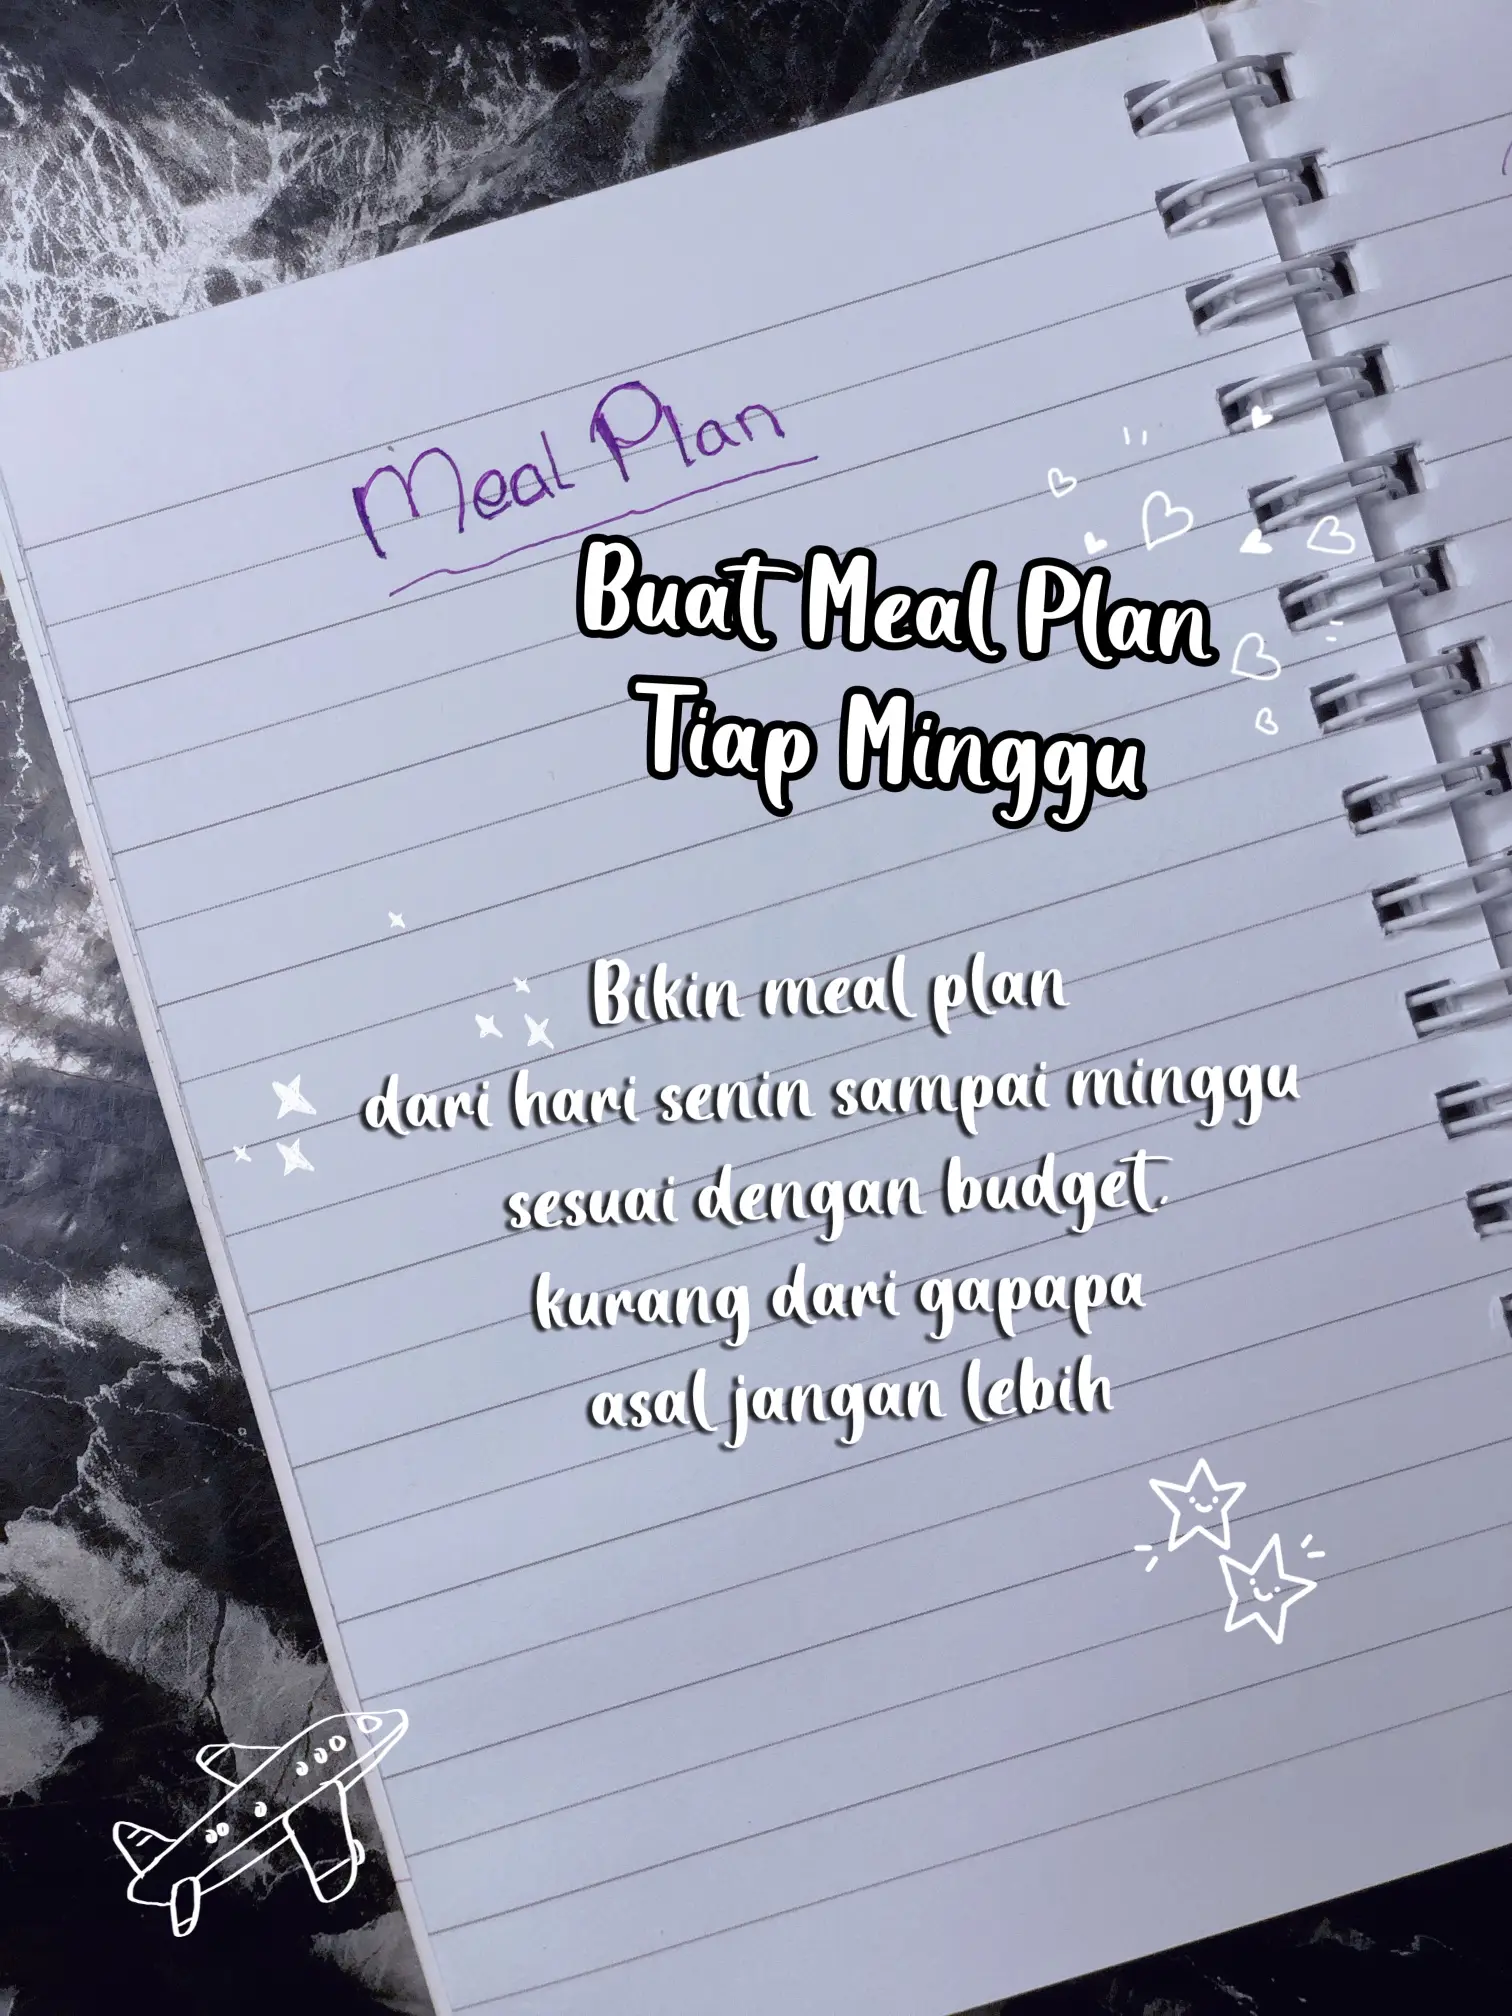 Meal Plan
Buat Meal Plan
Tiap Minggu
Bikin meal plan
dari hari senin sampai minggu
sesuai dengan budget.
kurang dari gapapa
asal jangan lebih